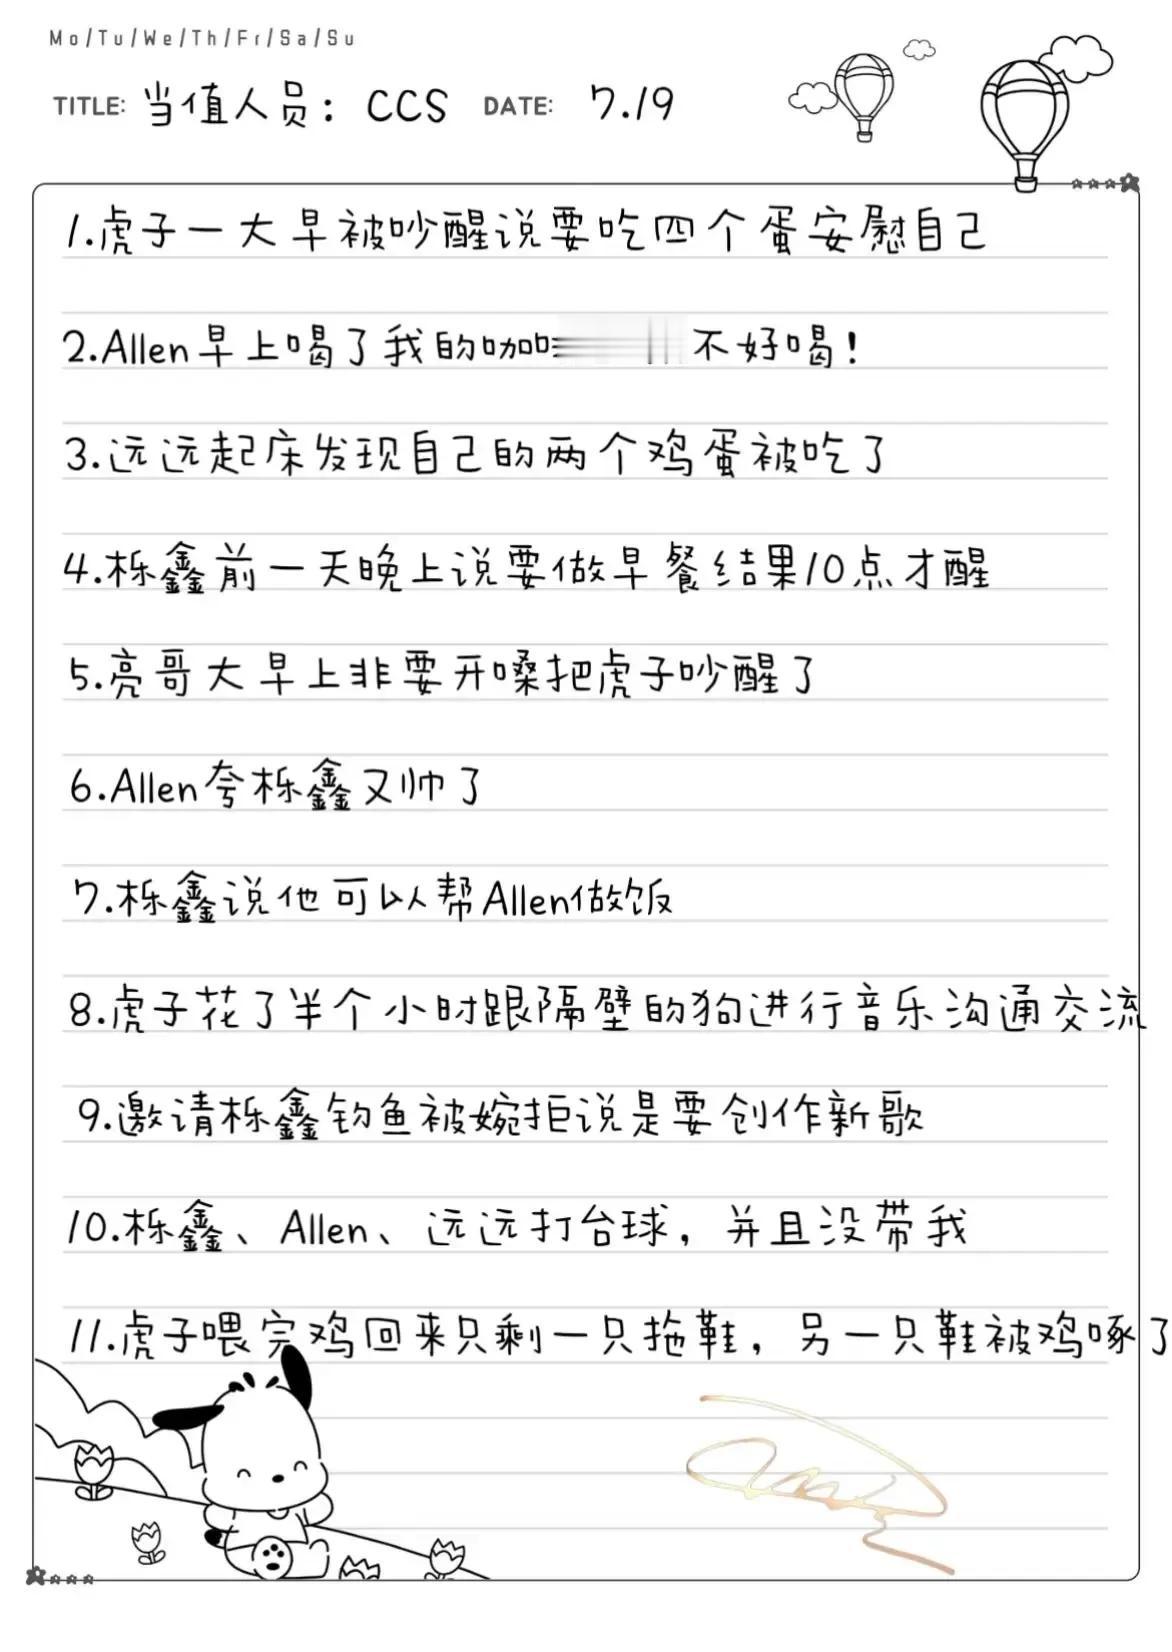 Mo/Tu/We/Th/Fr/Sa/Su
TITLE: 当值人员：CCS DATE: 7.19
1.虎子一大早被吵醒说要吃四个蛋安慰自己
2.Allen早上喝了我的咖 不好喝！
3.远远起床发现自己的两个鸡蛋被吃了
4.栎鑫前一天晚上说要做早餐结果10点才醒
5.亮哥大早上非要开嗓把虎子吵醒了
6.Allen夸栎鑫又帅了
7.栎鑫说他可以帮Allen做饭
8.虎子花了半个小时跟隔壁的狗进行音乐沟通交流
9.邀请栎鑫钓鱼被婉拒说是要创作新歌
10.栎鑫、Allen、远远打台球，并且没带我
11.虎子喂完鸡回来只剩一只拖鞋，另一只鞋被鸡啄了